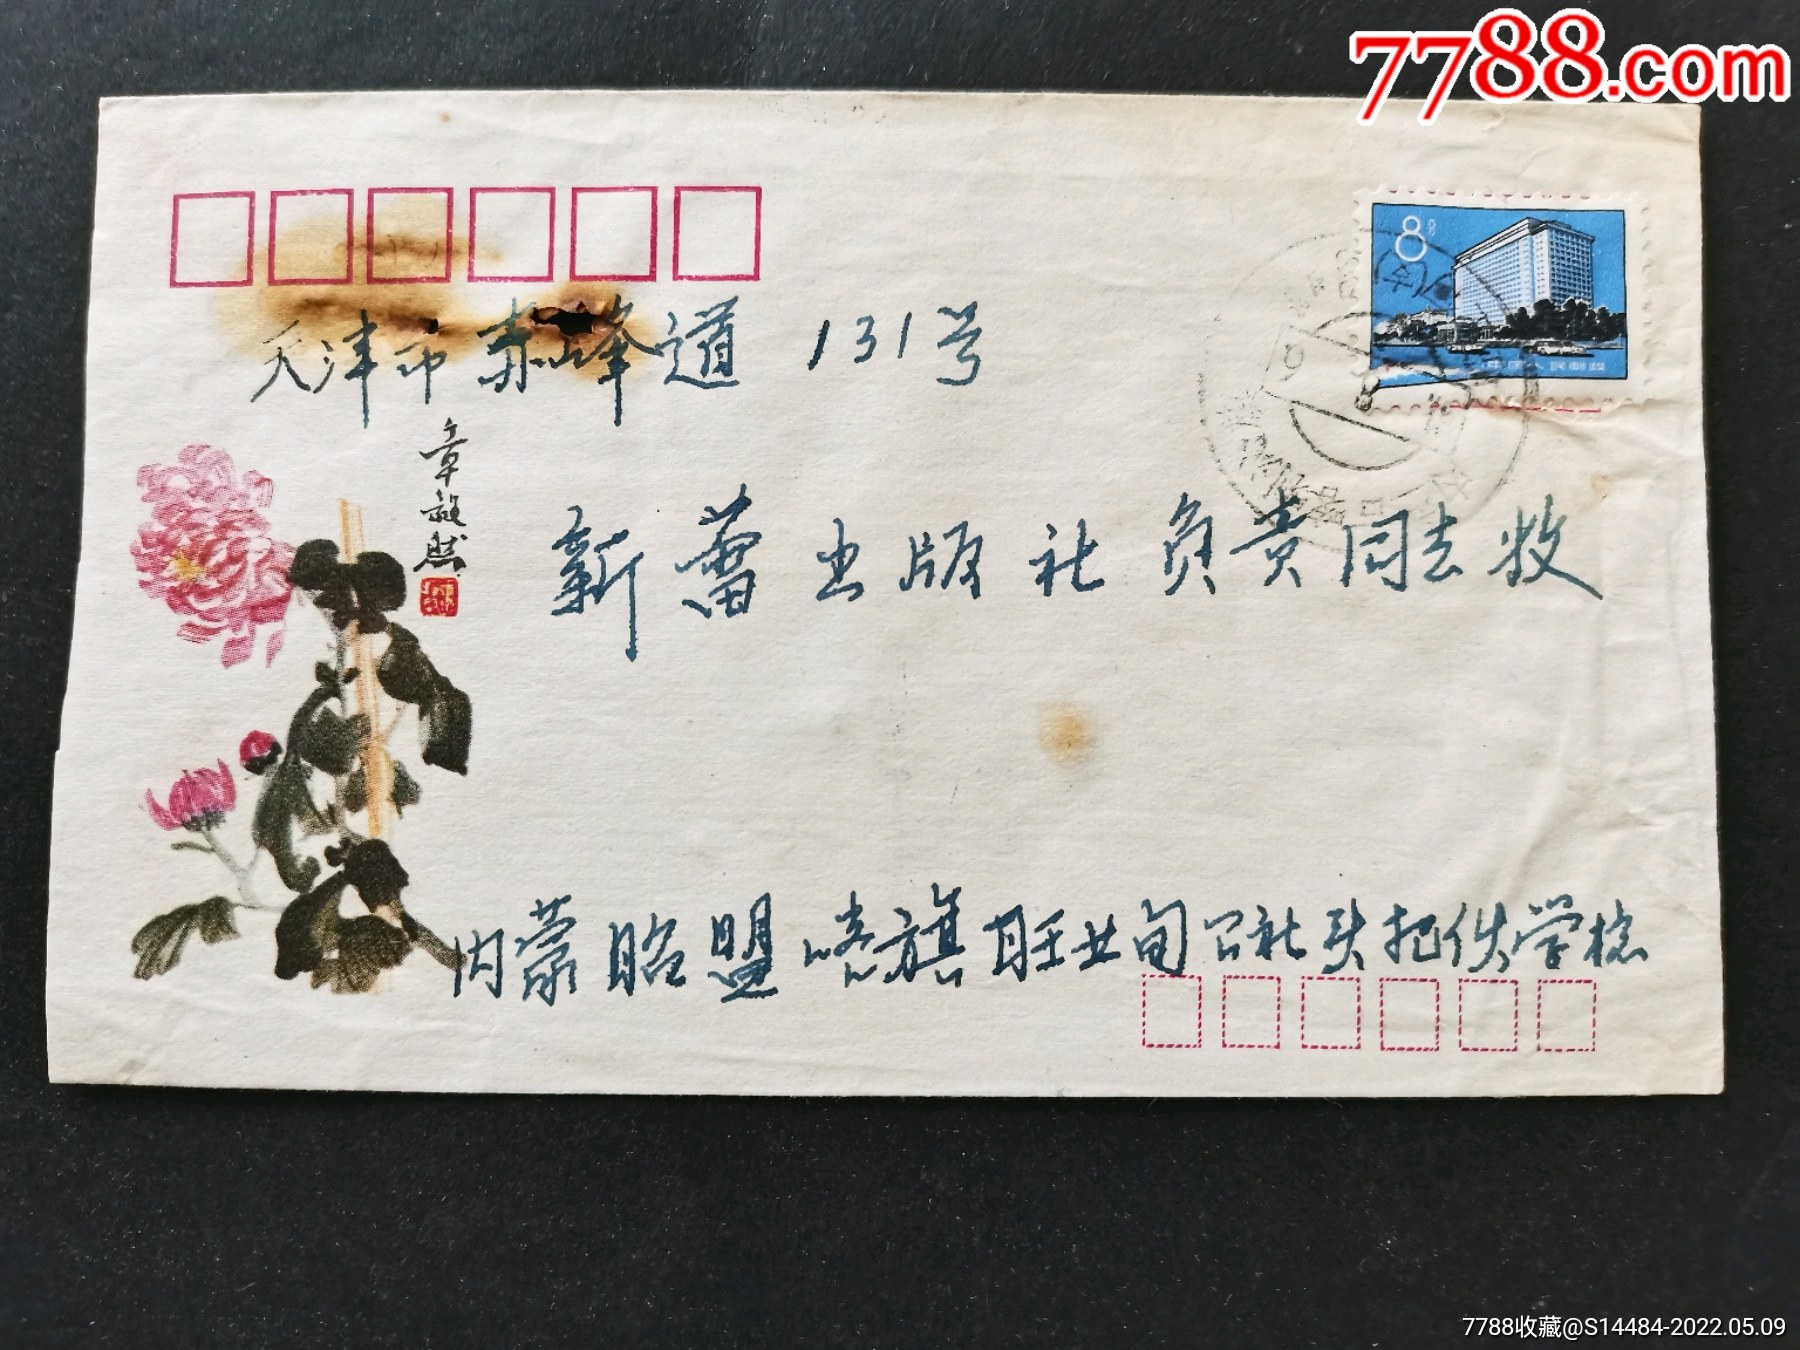 7788.com
8分
天津市赤峰道 131号
章毅然
新蕾出版社负责同志收
内蒙昭盟喀旗旺业甸公社头把伙学校
7788收藏@S14484-2022.05.09